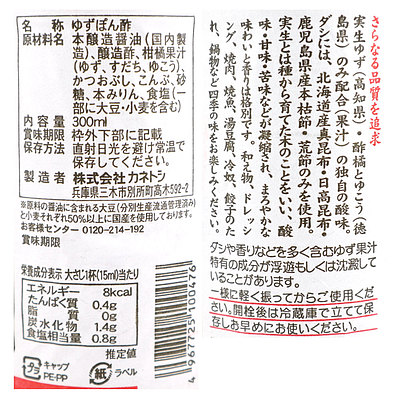 名称 ゆずぽん酢
原材料名 本醸造醤油(国内製
造)、醸造酢、柑橘果汁
(ゆず、すだち、ゆこう)、
かつおぶし、こんぶ、砂
糖、本みりん、食塩(一
部に大豆・小麦を含む)
内容量 300ml
賞味期限 枠外下部に記載
保存方法 直射日光を避け常温で
保存してください。
製造者 株式会社 カネトシ
兵庫県三木市別所町高木592-2
※原料の醤油に含まれる大豆(分別生産流通管理済み)
と小麦それぞれ50%以上に国産を使用しております。
お客様センター 0120-214-192
賞味期限
栄養成分表示 大さじ1杯(15ml)当たり
エネルギー 8kcal
たんぱく質 0.4g
脂質 0g
炭水化物 1.4g
食塩相当量 0.8g
推定値
プラ
キャップ
PE・PP
紙
ラベル
4967725100476
さらなる品質を追求
実生ゆず(高知県)・酢橘とゆこう(徳
島県)のみ配合(果汁)の独自の酸味。
ダシには、北海道産真昆布・日高昆布・
鹿児島県産本枯節・荒節のみを使用。
実生とは種から育てた木のことをいい、酸
味・甘味・苦味などが凝縮され、まろやかな
味わいと香りは格別です。和え物、ドレッシ
ング、焼肉、焼魚、湯豆腐、冷奴、餃子のた
れ、鍋物など四季の味をお楽しみください。
ダシや香りなどを多く含むゆず果汁
特有の成分が浮遊もしくは沈澱して
いることがあります。
一様に軽く振ってからご使用くだ
さい。開栓後は冷蔵庫で立てて保
存しお早めにお使いください。